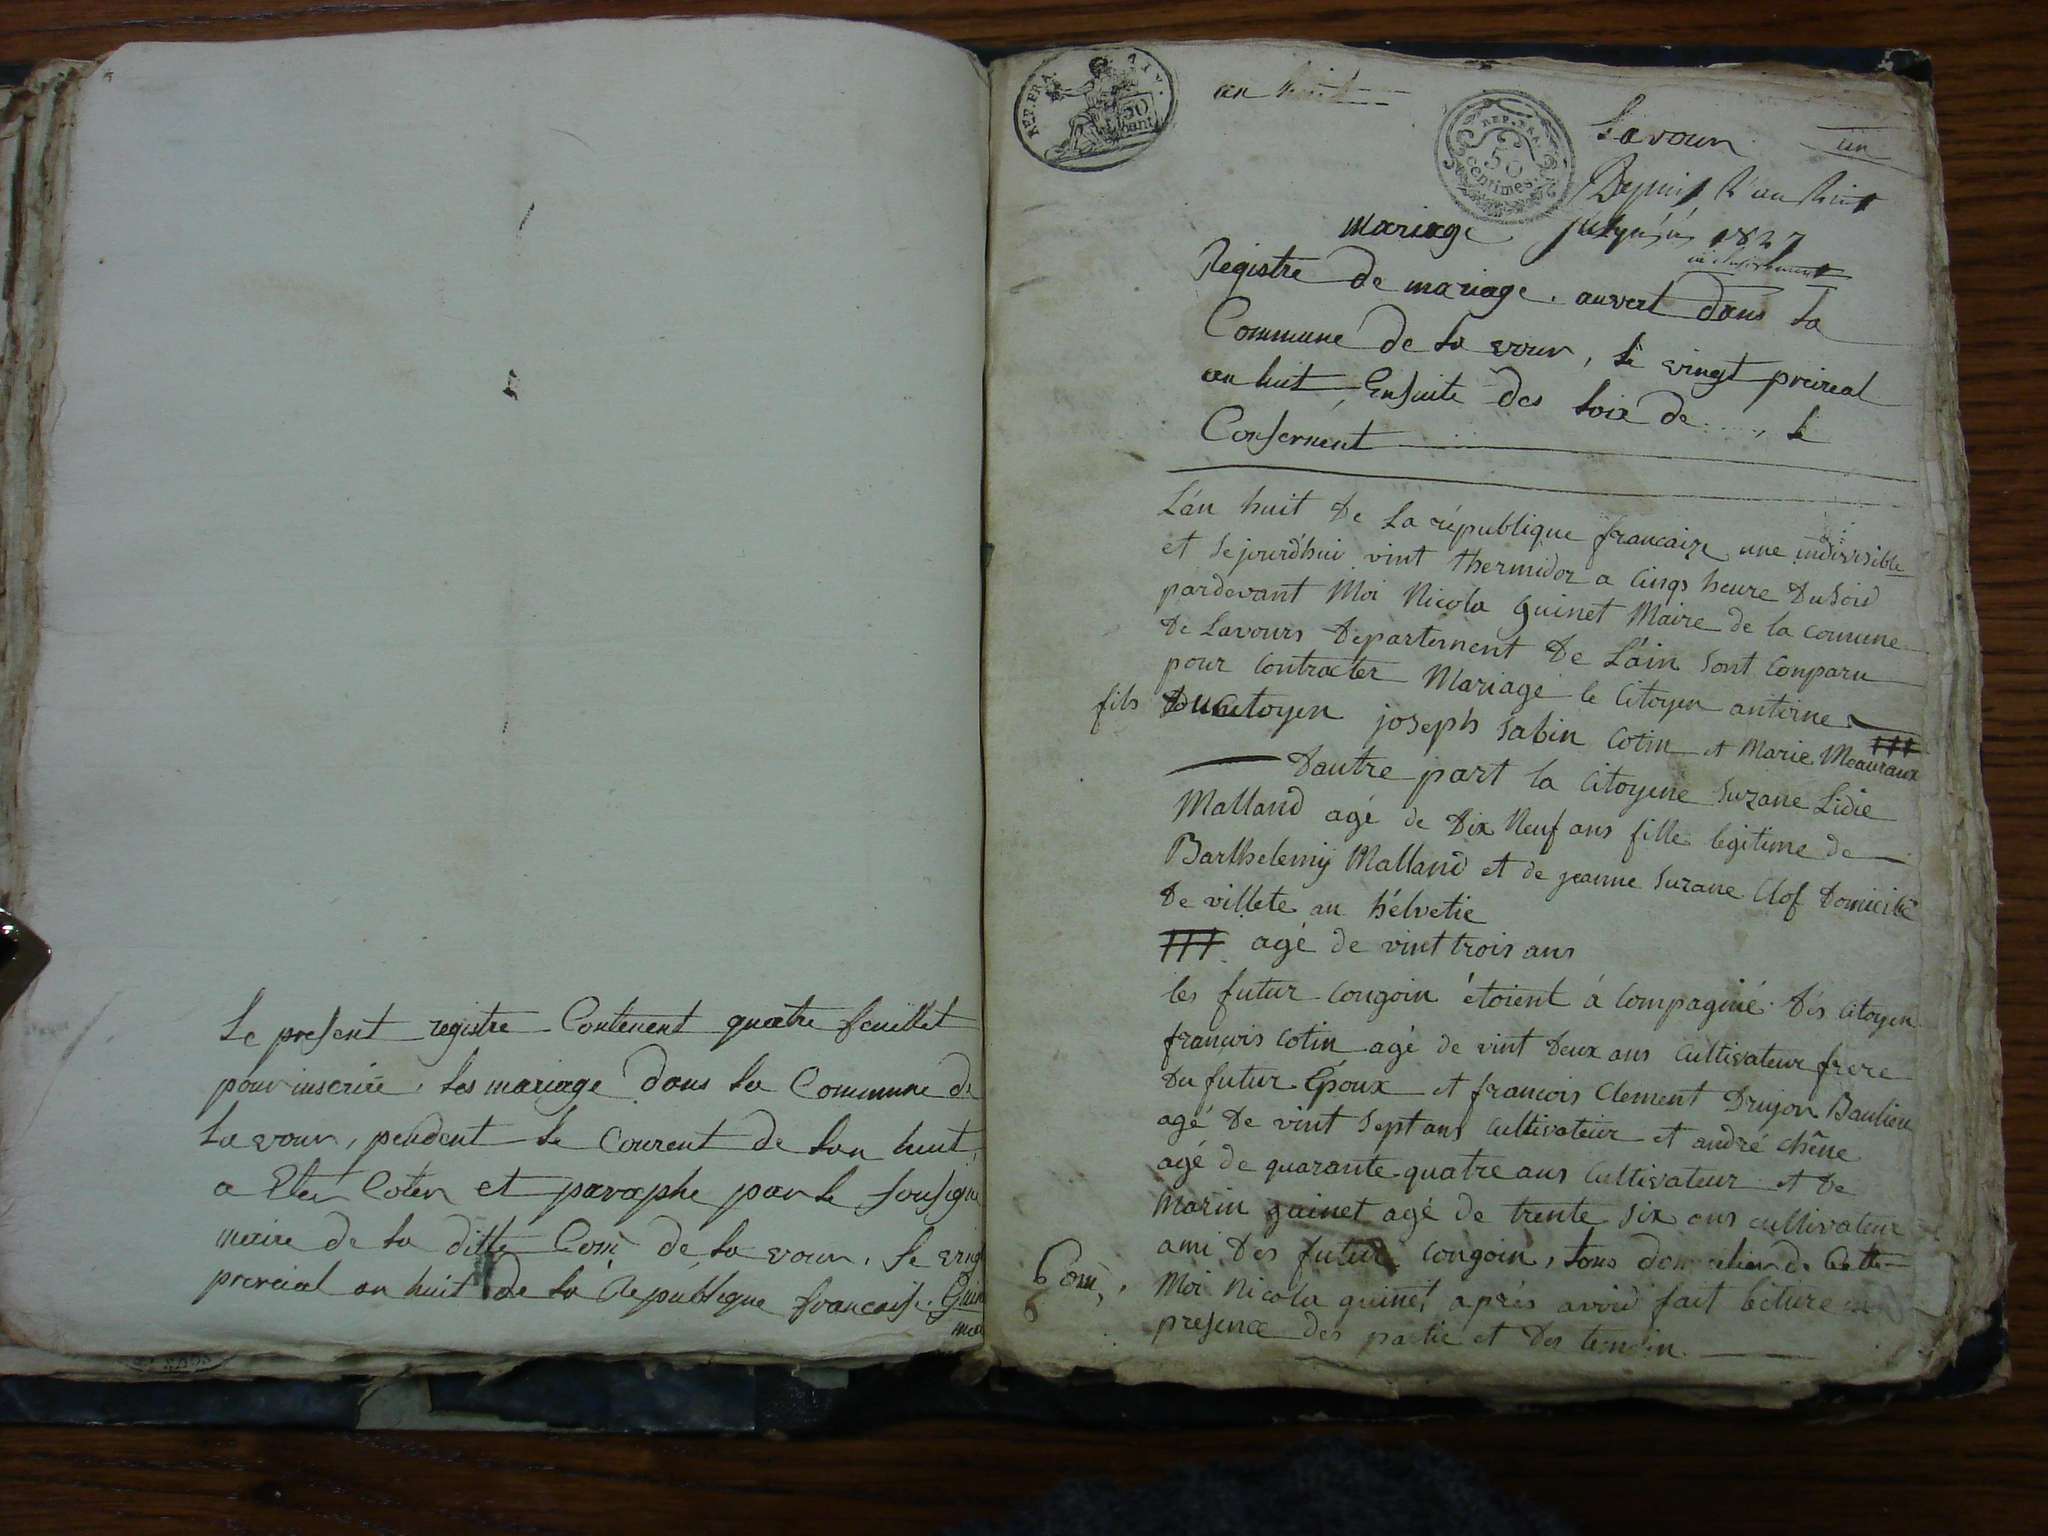 Le present registre Contenent quatre feuillet
pour inscrire les mariage dans la Commune de
la vour, pendent le Courent de lan huit,
a Eter Coter et paraphe par le sousigne
maire de la ditte Com de la vour, le vingt
prereial an huit de la Republique francaise. Guin
mai
REP. FRA.
an huit
REP. FRA.
50
centimes.
Lavour
un
Depuis l'an huit
mariage jusqu'en 1827
inclusivement
Registre de mariage. auvert dans la
Commune de la vour, le vingt preireal
an huit Ensuite des loix de ...., le
Consernent
L'an huit De La république francaize une indivisible
et sejourd'hui vint thermidor a cinqs heure Du soir
pardevant Moi Nicola guinet Maire de la comune
De Lavours Departement De L'ain sont comparu
pour contracter Mariage le Citoyen antoine
fils Du Citoyen joseph sabin Cotin et Marie Meauraux
D'autre part la Citoyene suzane Lidie
Malland agé de Dix Neuf ans fille legitime de
Barthelemij Malland et de jeanne suzane Clof Domicilié
De villete an hélvetie
agé de vint trois ans
les futur congoin étoient á compagnié Dés Citoyen
francois Cotin agé de vint Deux ans cultivateur frere
Du futur Epoux et francois Clement Drujon Baulieu
agé De vint sept ans cultivateur et andré chêne
agé de quarante quatre ans cultivateur et De
Marin guinet agé de trente six ans cultivateur
ami Des futur congoin, tous de Cette
Com, Moi Nicola guinet aprés avoir fait lecture en
presence des partie et Des temoin.